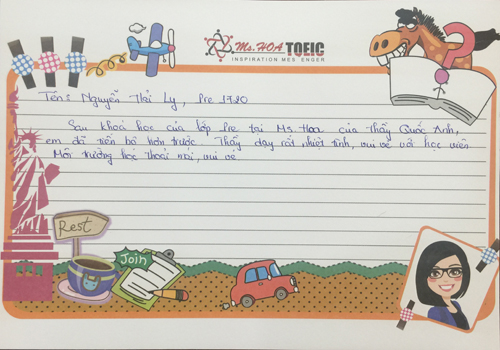 Ms. HOA TOEIC
INSPIRATION MESSENGER
Tên: Nguyễn Thị Ly, Pre 1720
Sau khoá học của lớp Pre tại Ms. Hoa của thầy Quốc Anh,
em đã tiến bộ hơn trước. Thầy dạy rất nhiệt tình, vui vẻ với học viên
Môi trường học thoải mái, vui vẻ
Rest
Join